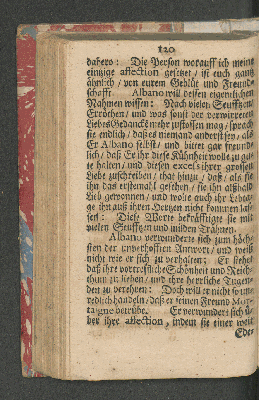 120
dahero: Die Person worauff ich meine
einzige affection gesetzet / ist euch gantz
ähnlich / von eurem Geblüt und Freund-
schafft. Albano will dessen eigentlichen
Nahmen wissen: Nach vielen Seuffzen /
Erröthen / und was sonst der verwirreten
Liebes Gedancken mehr zustossen mag / sprach
sie endlich / daß es niemand anders sey / als
Er Albano selbst / und bittet gar freund-
lich / daß Er ihr diese Kühnheit wolle zu gu-
te halten / und diesen excels ihrer grossen
Liebe zuschreiben / that hinzu / daß / als sie
ihn das erstemahl gesehen / sie ihn alßbald
Lieb gewonnen / und wolte auch ihr Lebta-
ge ihn auß ihren Hertzen nicht kommen las-
sen: Diese Worte bekräfftigte sie mit
vielen Seuffzen und milden Trähnen.
Albano verwunderte sich zum höch-
sten der unverhofften Antwort / und weiß
nicht wie er sich zu verhalten; Er siehet
daß ihre vortreffliche Schönheit und Reich-
thum zu lieben / und ihre herrliche Tugen-
den zu verehren: Doch will er nicht so un-
redlich handeln / daß er seinen Freund Mon-
taigne betrübe. Er verwundert sich ü-
ber ihre affection, indem sie einer weit
Edes